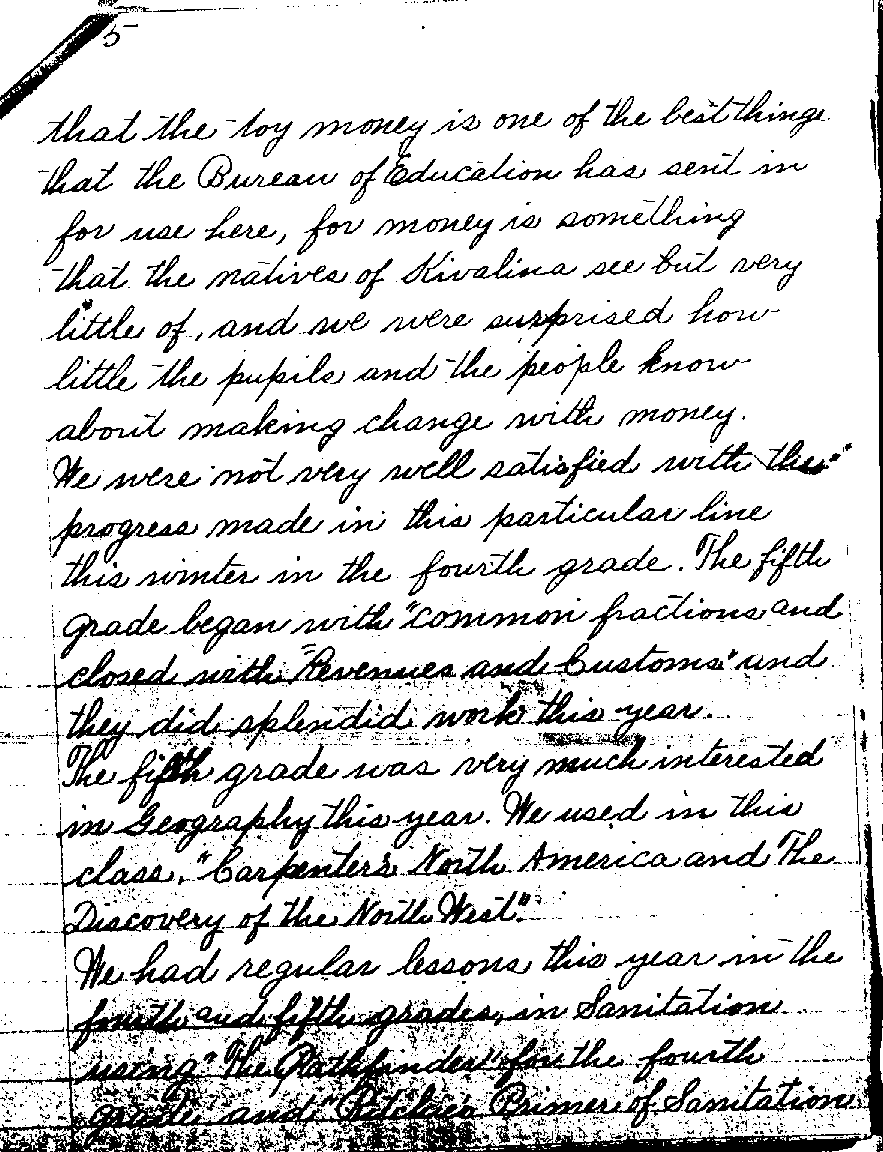 5
that the toy money is one of the best things
that the Bureau of Education has sent in
for use here, for money is something
that the natives of Kivalina see but very
little of, and we were surprised how
little the pupils and the people know
about making change with money.
We were not very well satisfied with the
progress made in this particular line
this winter in the fourth grade. The fifth
grade began with "common fractions and
closed with "Revenues and Customs" and
they did splendid work this year.
The fifth grade was very much interested
in Geography this year. We used in this
class, "Carpenter's North America and The
Discovery of the North West".
We had regular lessons this year in the
fourth and fifth grades, in Sanitation
using "The Pathfinder" for the fourth
grade, and "Ritchie's Primer of Sanitation